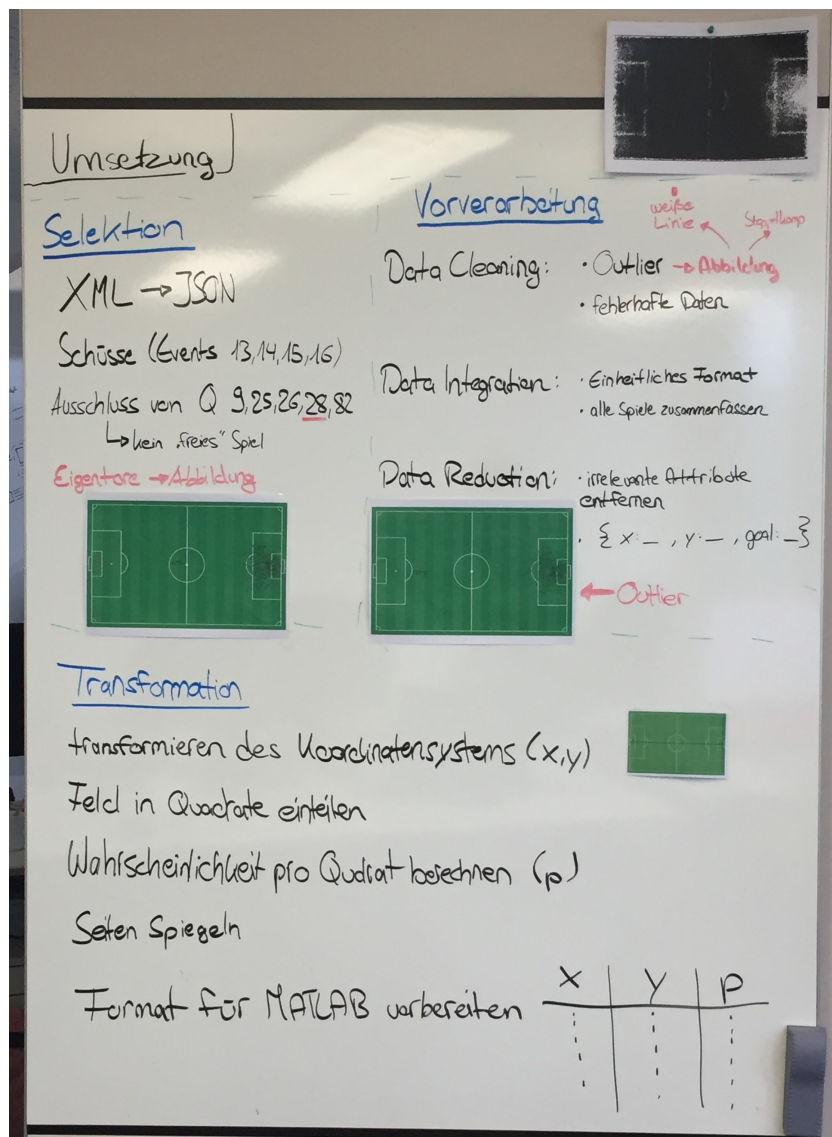 Umsetzung
Selektion
XML → JSON
Schüsse (Events 13,14,15,16)
Ausschluss von Q 9,25,26,28,82
↳ kein „freies" Spiel
Eigentore → Abbildung
Vorverarbeitung
weiße
Linie
Data Cleaning: • Outlier → Abbildung
• fehlerhafte Daten
Data Integration: • Einheitliches Format
• alle Spiele zusammenfassen
Data Reduction: • irrelevante Attribute
entfernen
• { x: _ , y: _ , goal: _ }
← Outlier
Transformation
transformieren des Koordinatensystems (x,y)
Feld in Quadrate einteilen
Wahrscheinlichkeit pro Qudrat berechnen (p)
Seiten Spiegeln
Format für MATLAB vorbereiten
X Y P